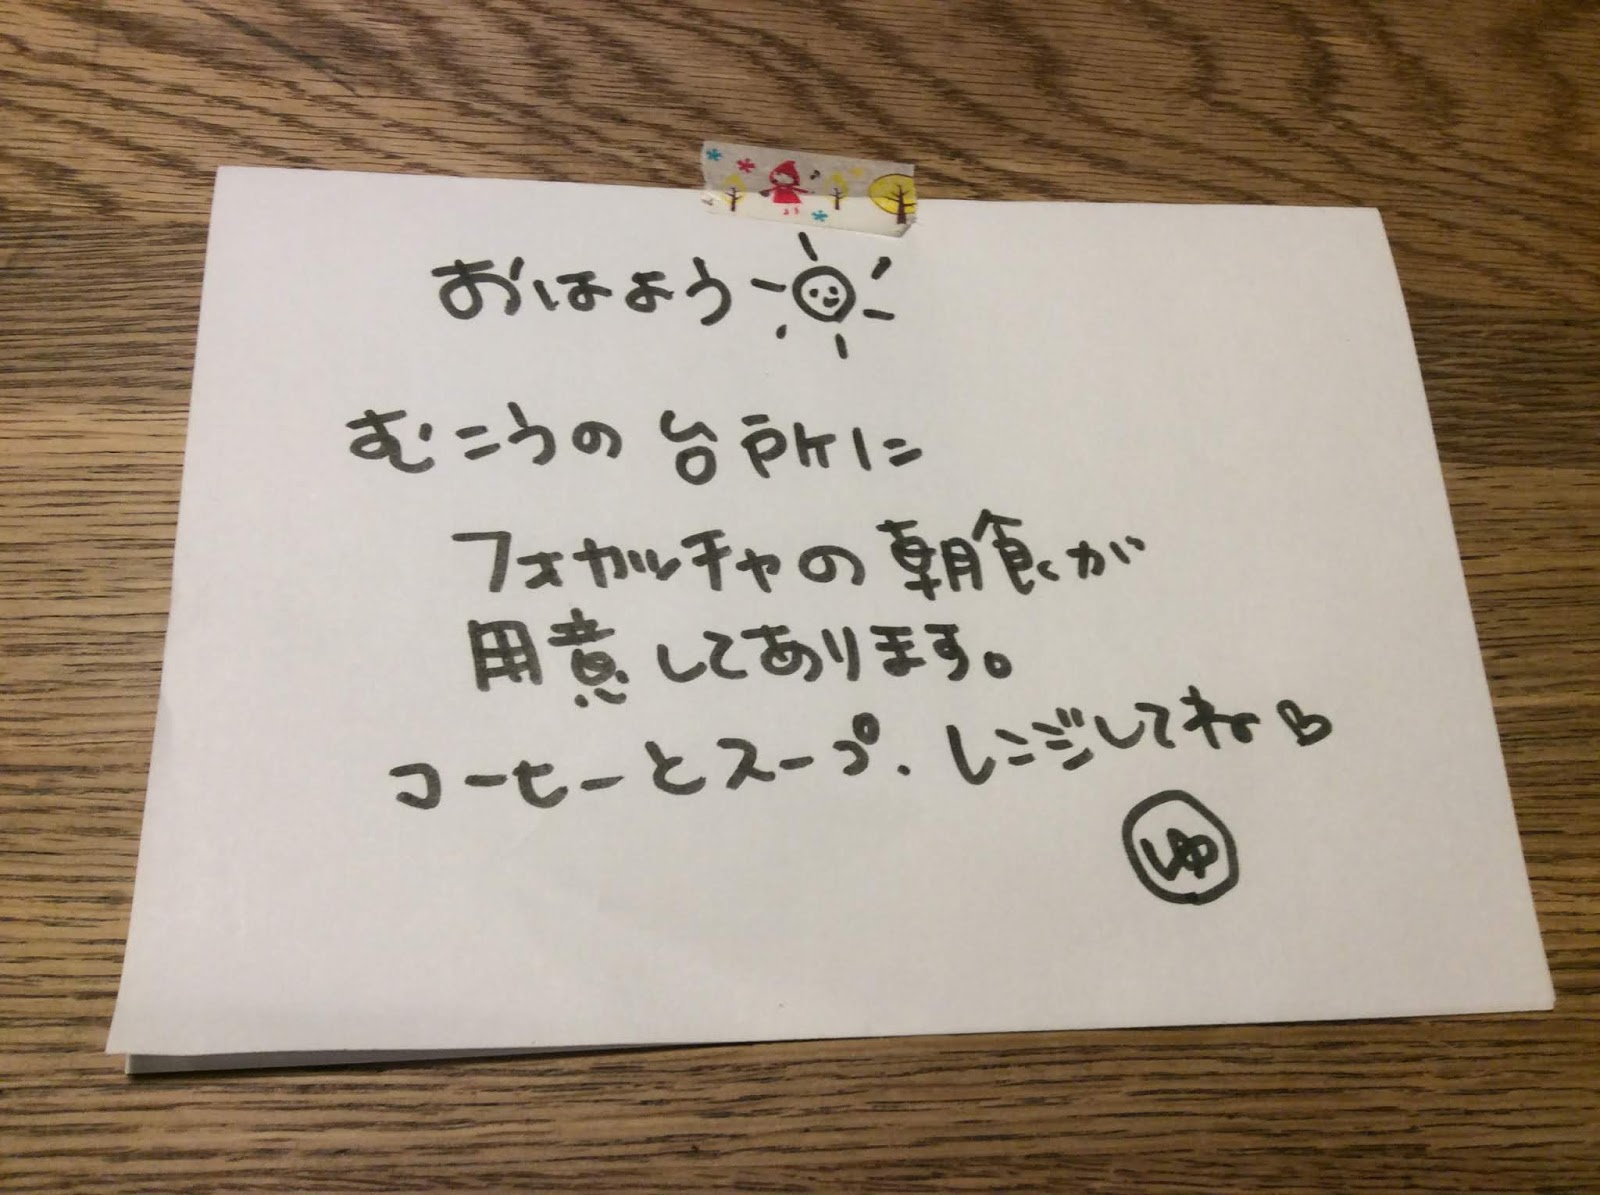 おはよう
むこうの台所に
フォカッチャの朝食が
用意してあります。
コーヒーとスープ、レンジしてね
ゆ